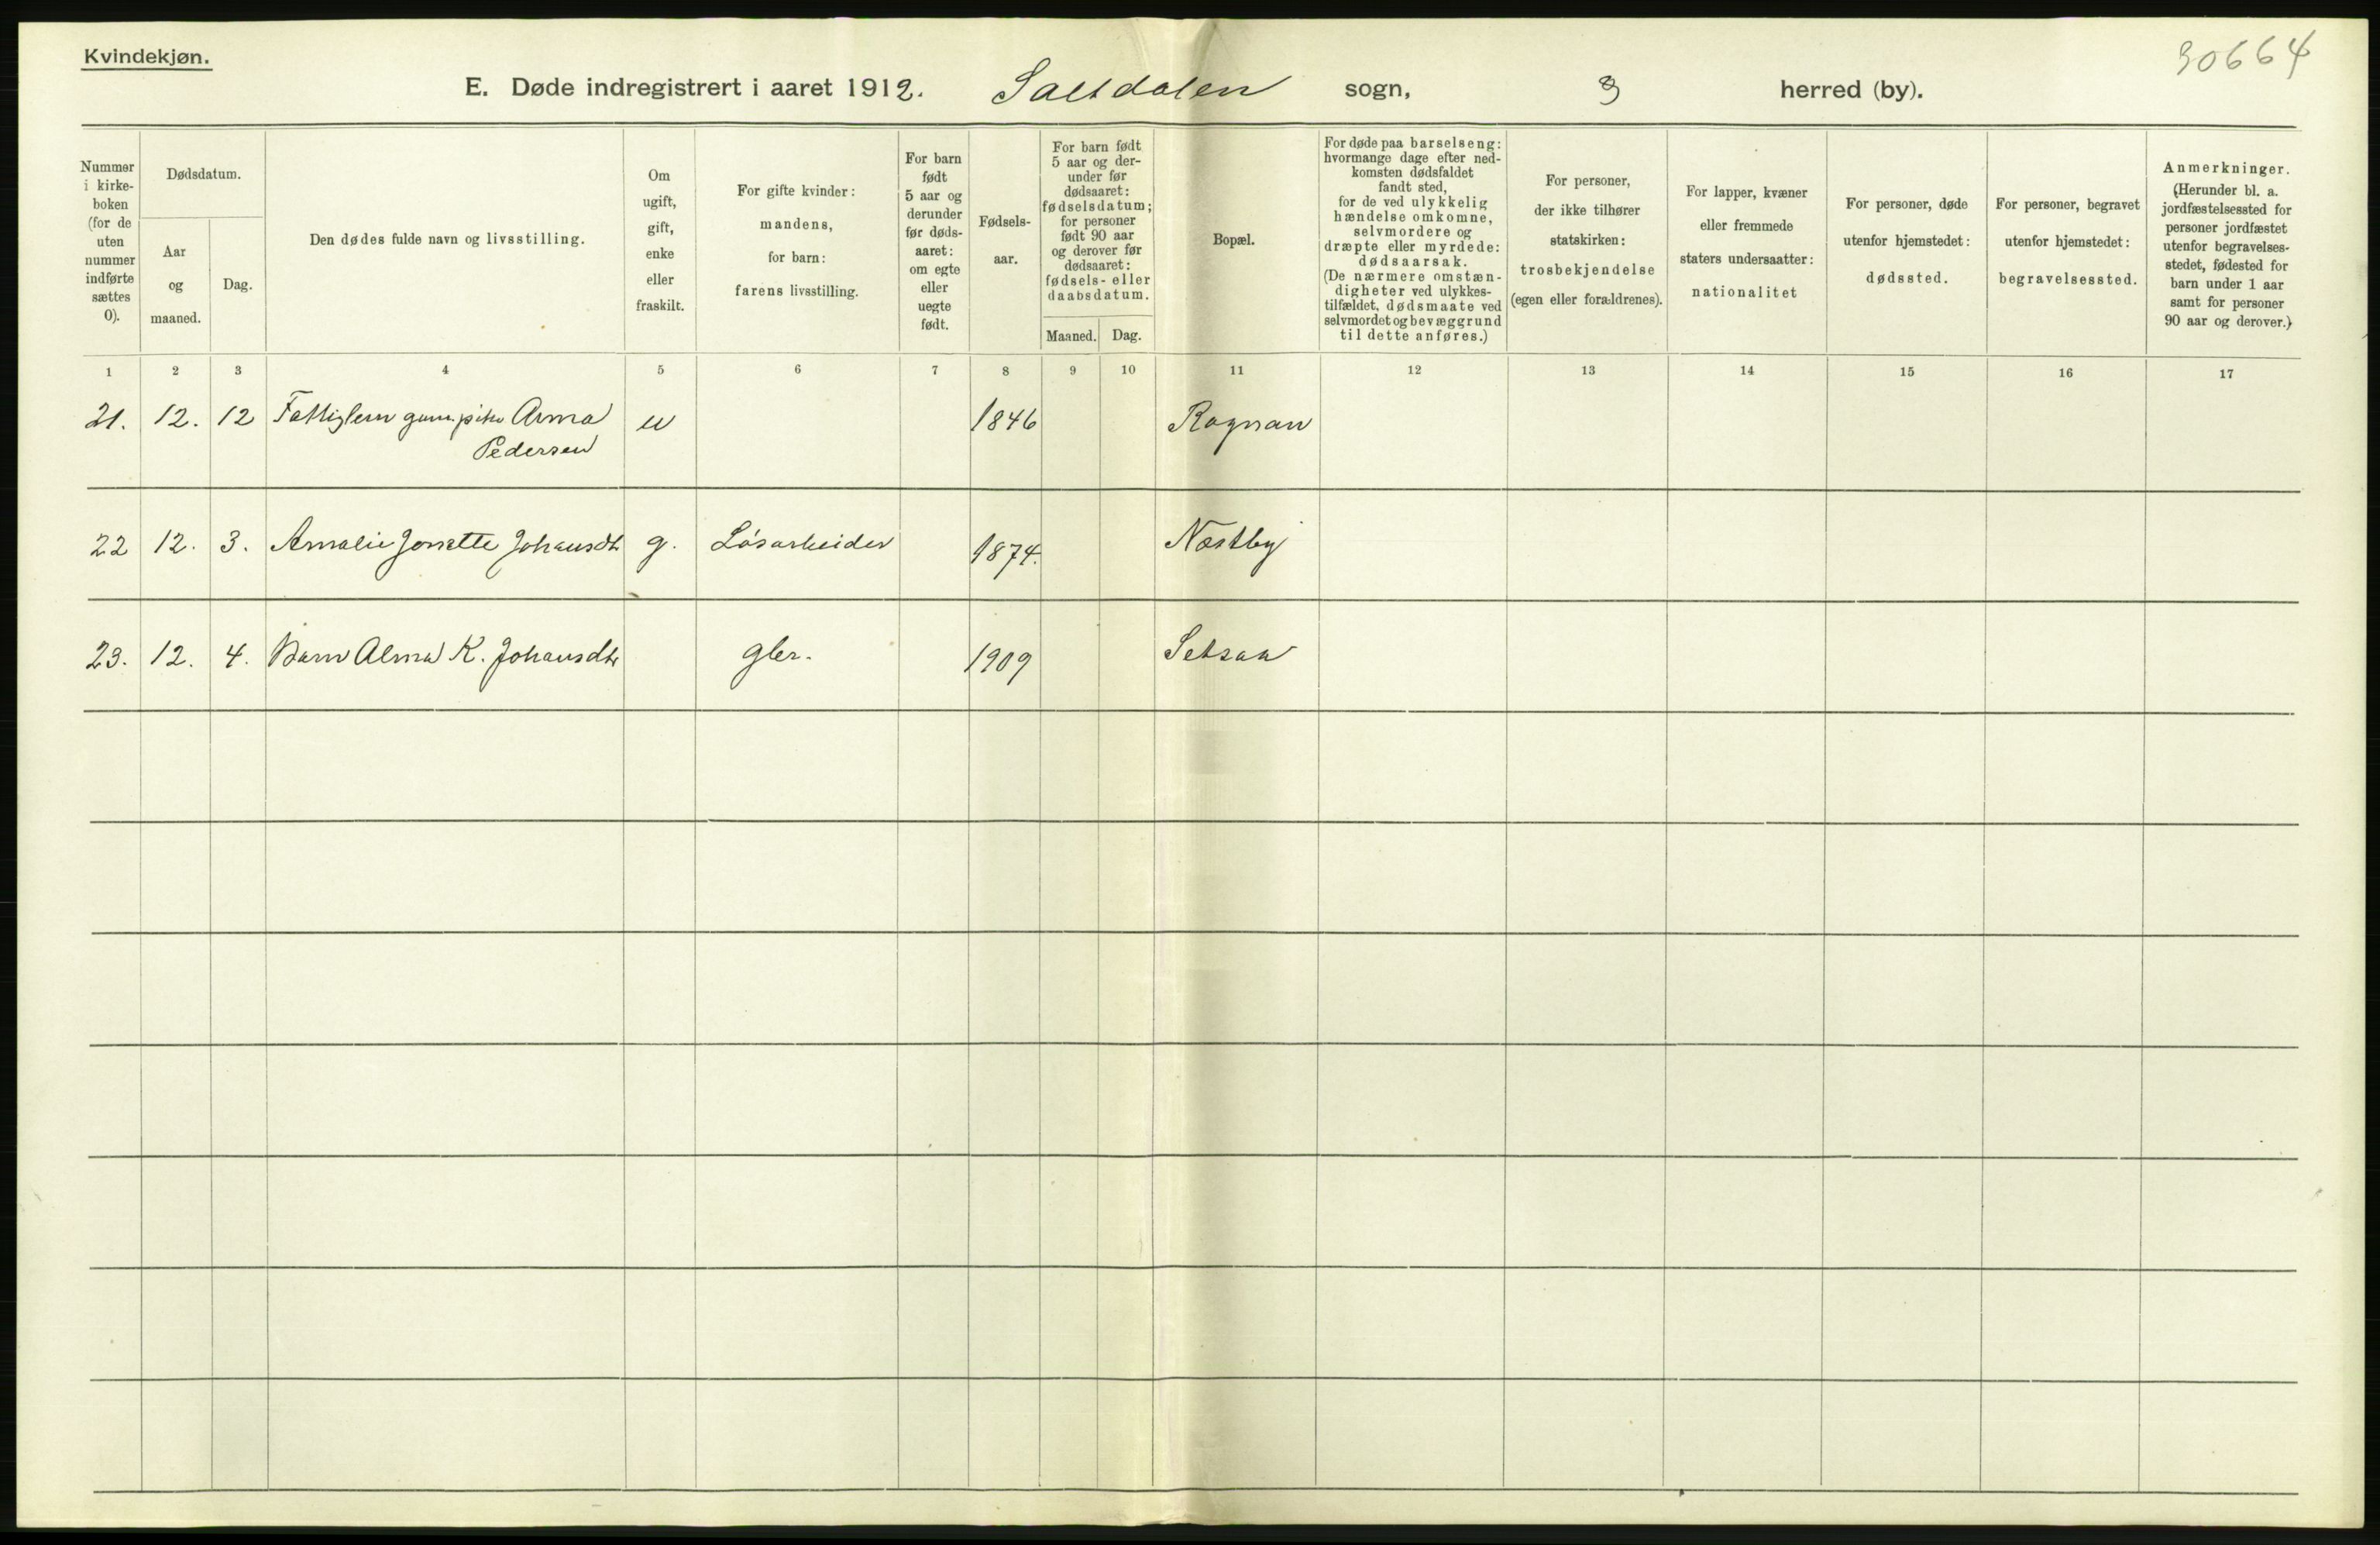 Kvindekjøn.
30664
E. Døde indregistrert i aaret 1912. Saltdalen sogn, 3 herred (by).
Nummer
i kirke-
boken
(for de
uten
nummer
indførte
sættes
0).
Dødsdatum.
Aar
og
maaned.
Dag.
Den dødes fulde navn og livsstilling.
Om
ugift,
gift,
enke
eller
fraskilt.
For gifte kvinder:
mandens,
for barn:
farens livsstilling.
For barn
født
5 aar og
derunder
før døds-
aaret:
om egte
eller
uegte
født.
Fødsels-
aar.
For barn født
5 aar og der-
under før
dødsaaret:
fødselsdatum;
for personer
født 90 aar
og derover før
dødsaaret:
fødsels- eller
daabsdatum.
Maaned. Dag.
Bopæl.
For døde paa barselseng:
hvormange dage efter ned-
komsten dødsfaldet
fandt sted,
for de ved ulykkelig
hændelse omkomne,
selvmordere og
dræpte eller myrdede:
dødsaarsak.
(De nærmere omstæn-
digheter ved ulykkes-
tilfældet, dødsmaate ved
selvmordet og bevæggrund
til dette anføres.)
For personer,
der ikke tilhører
statskirken:
trosbekjendelse
(egen eller forældrenes).
For lapper, kvæner
eller fremmede
staters undersaatter:
nationalitet
For personer, døde
utenfor hjemstedet:
dødssted.
For personer, begravet
utenfor hjemstedet:
begravelsessted.
Anmerkninger.
(Herunder bl. a.
jordfæstelsessted for
personer jordfæstet
utenfor begravelses-
stedet, fødested for
barn under 1 aar
samt for personer
90 aar og derover.)
1 2 3 4 5 6 7 8 9 10 11 12 13 14 15 16 17
21. 12. 12 Fattiglem Anna u 1846 Rognan
Pedersen
22 12. 3. Amalie Jonette Johansdt g. Løsarbeider 1874. Næstby
23. 12. 4. Barn Alma K. Johansdtr gbr. 1909 Setsaa